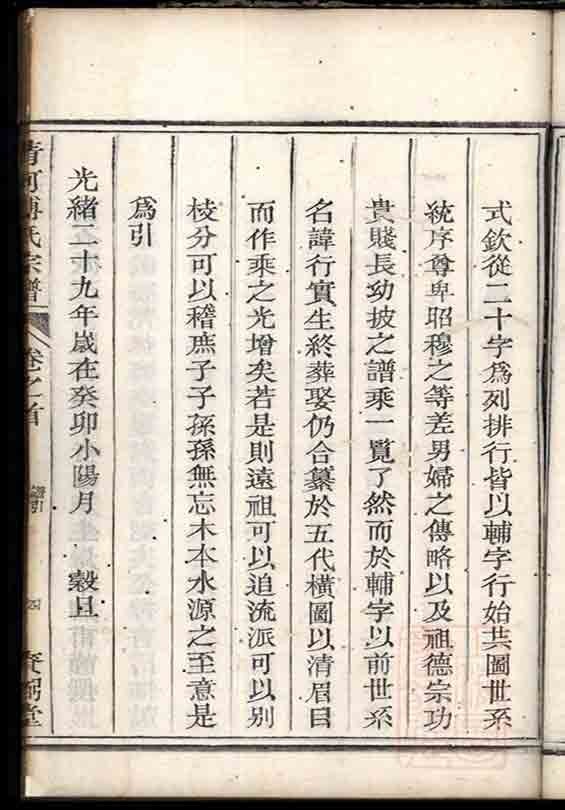 式欽從二十字爲列排行皆以輔字行始共圖世系
統序尊卑昭穆之等差男婦之傳略以及祖德宗功
貴賤長幼披之譜乘一覽了然而於輔字以前世系
名諱行實生終葬娶仍合纂於五代橫圖以清眉目
而作乘之光增矣若是則遠祖可以追流派可以別
枝分可以稽庶子子孫孫無忘木本水源之至意是
爲引
光緒二十九年歲在癸卯小陽月 穀旦
清河傅氏宗譜 卷之首 譜引 堂